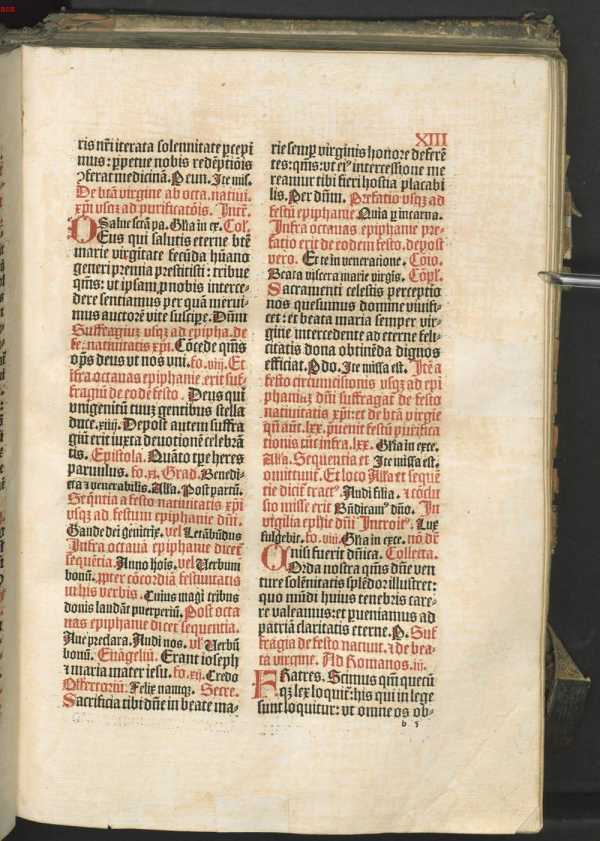 XIII
ris nr̄i iterata solennitate ꝑcepi
mus: ꝑpetue nobis redēptiōis
ꝯferat medicinā. Peun. Ite mis.
De btā virgine ab octa. natiui.
xp̄i vsqꝫ ad purificatōis. Intr̄.
Salue scta pa. Gl̄ia in ex. Col.
DEus qui salutis eterne btē
marie virgītate fecūda hūano
generi premia prestitisti: tribue
qm̄s: vt ipsam ꝓ nobis interce-
dere sentiamus per quā merui-
mus auctorē vite suscipe. Dn̄m
Suffragiuꝫ vsqꝫ ad epipha. de
fe. natiuitatis xp̄i. Cōcede qm̄s
op̄s deus vt nos vni. fo. viij. Et
ifra octauas epiphanie erit suf-
fragiū de eodē festo. Deus qui
vnigenitū tuuꝫ gentibus stella
duce. xiiij. Depost autem suffra
giū erit iuxta deuotionē celebrā
tis. Epistola. Quāto tp̄e heres
paruulus. fo. xi. Grad. Benedi-
cta ⁊ venerabilis. Alla. Post partū.
Seq̄ntia a festo natiuitatis xp̄i
vsqꝫ ad festum epiphanie dn̄i.
Gaude dei genitrix. vel Letabūdus
Infra octauā epiphanie dicet
sequētia. Anno hoīs. vel Verbum
bonū. ꝓpter cōcordiā festiuitatis
in his verbis. Cuius magi tribus
donis laudāt puerperiū. Post octa
nas epiphanie dicet sequentia.
Aue preclara. Audi nos. vl̄ Verbū
bonū. Euāgeliū. Erant ioseph
⁊ maria mater iesu. fo. xij. Credo
Offertoriū. Felix namqꝫ. Secre.
Sacrificia tibi dn̄e in beate ma-
rie semꝑ virginis honore deferē
tes: qm̄s: vt eiꝰ intercessione me
reamur tibi fieri hostia placabi
lis. Per dn̄m. Prefatio vsqꝫ ad
festū epiphanie. Quia ꝑ incarna.
Infra octauas epiphanie pre-
fatio erit de eodem festo. depost
vero. Et te in veneratione. Cōio.
Beata viscera marie virgis. Cōpl̄.
Sacramenti celestis perceptio
nos quesumus domine viuifi-
cet: et beata maria semper vir-
gine intercedente ad eterne feli-
citatis dona obtinēda dignos
efficiat. P do. Ite missa est. Itē a
festo circumcisionis vsqꝫ ad epi
phaniaꝫ dn̄i suffragaꝫ de festo
natiuitatis xp̄i: et de btā virgie
qn̄ aūt. lxx. ꝑuenit festū purifica
tionis tūc infra. lxx. Gl̄ia in exce.
Alla. Sequentia et Ite missa est.
omittunt̄. Et loco Alla et seque
tie dicit̄ tractꝰ. Audi filia. ⁊ cōclu
sio misse erit Bn̄dicamꝰ dn̄o. In
vigilia ephie dn̄i Introitꝰ. Lux
fulgebit. fo. viij. Gl̄ia in exce. nō dr̄
nisi fuerit dn̄ica. Collecta.
COrda nostra qm̄s dn̄e ven
ture solēnitatis splēdor illustret:
quo mūdi huius tenebris care-
re valeamus: et ꝑueniamus ad
patriā claritatis eterne. P. Suf
fragia de festo natiuit. ⁊ de bea-
ta virgine. Ad Romanos. iij.
FRatres. Scimus qm̄ quecū
qꝫ lex loquit̄: his qui in lege
sunt loquitur: vt omne os ob-
b 5